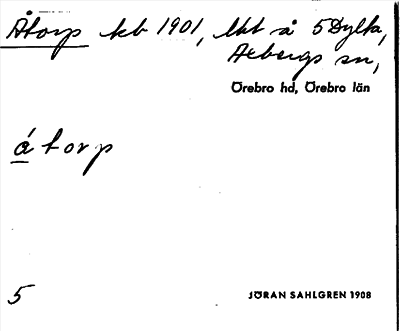 Åtorp kb 1901, lht å 5 Dylta,
Axbergs sn,
Örebro hd, Örebro län
átorp
5 JÖRAN SAHLGREN 1908